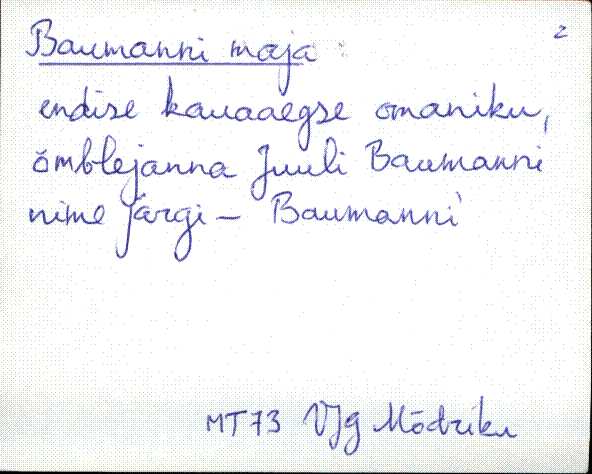 2
Baumanni maja
endise kauaaegse omaniku,
õmblejanna Juuli Baumanni
nime järgi – Baumanni
MT73 VJg Mõdriku